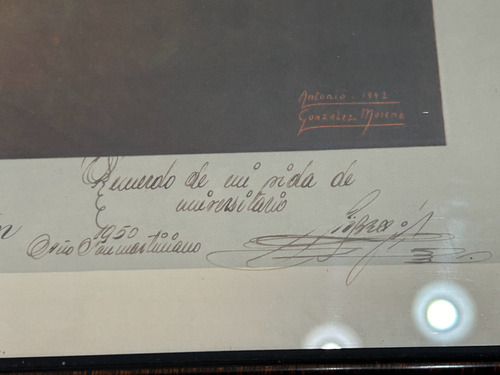 Antonio - 1942
Gonzalez Moreno
Recuerdo de mi vida de
universitario
1950
Año Sanmartiniano